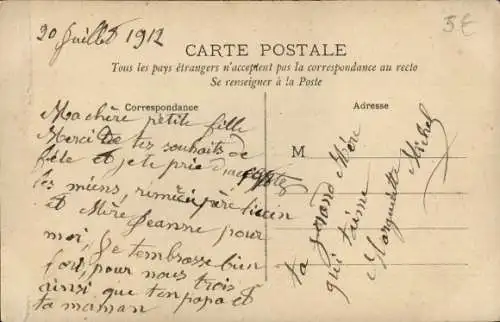 20 Juillet 1912
5€
CARTE POSTALE
Tous les pays étrangers n'acceptent pas la correspondance au recto
Se renseigner à la Poste
Correspondance
Ma chère petite fille
Merci de tes souhaits de
fête et je te prie d'accepter
les miens, remercie père lucien
et Mère Jeanne pour
moi, Je t'embrasse bien
fort, pour nous trois
ainsi que ton papa et
ta maman
Adresse
M
ta grand Mère
qui t'aime
Marguerite Michel